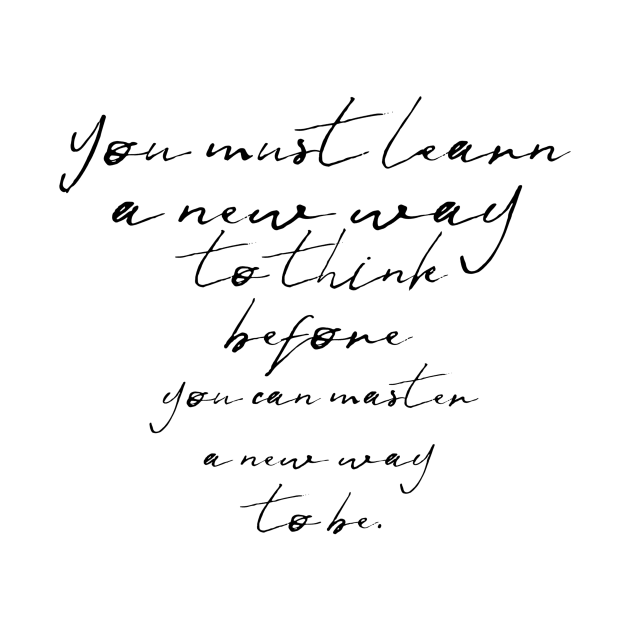 You must learn
a new way
to think
before
you can master
a new way
to be.